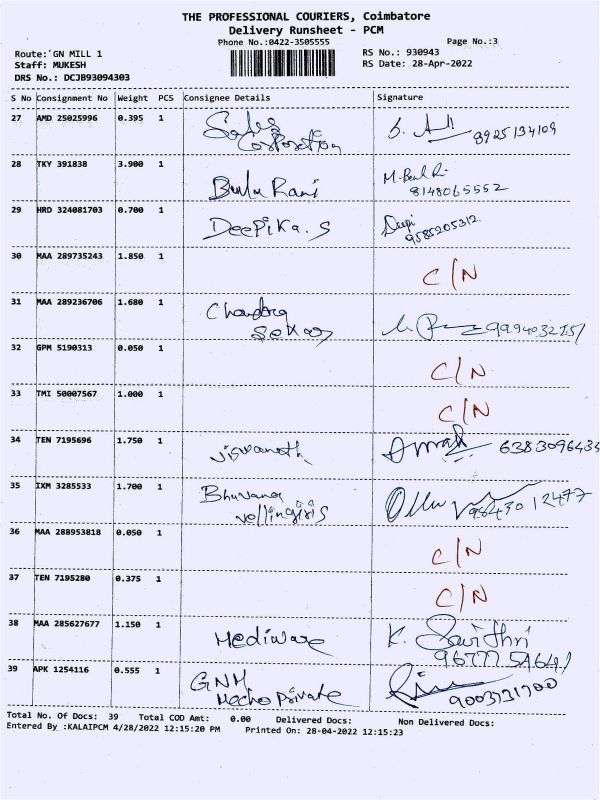 THE PROFESSIONAL COURIERS, Coimbatore
Delivery Runsheet - PCM
Phone No.:0422-3505555
Page No.:3
Route: GN MILL 1
RS No.: 930943
Staff: MUKESH
RS Date: 28-Apr-2022
DRS No.: DCJB93094303
S No Consignment No Weight PCS Consignee Details Signature
27 AMD 25025996 0.395 1 Sales Corporation 8925134109
28 TKY 391838 3.900 1 Bulu Rani 8148065552
29 HRD 324081703 0.700 1 Deepika.S Deepi 9585205312
30 MAA 289735243 1.850 1 C/N
31 MAA 289236706 1.680 1 Chandra Sekar
32 GPM 5190313 0.050 1 C/N
33 TMI 50007567 1.000 1 C/N
34 TEN 7195696 1.750 1 Viswanath 638309643
35 IXM 3285533 1.700 1 Bhuvana Vellingiri 9843012477
36 MAA 288953818 0.050 1 C/N
37 TEN 7195280 0.375 1 C/N
38 MAA 285627677 1.150 1 Mediware K. Savithri
39 APK 1254116 0.555 1 GNM Mecho Private
Total No. Of Docs: 39 Total COD Amt: 0.00 Delivered Docs: Non Delivered Docs:
Entered By :KALAIPCM 4/28/2022 12:15:20 PM Printed On: 28-04-2022 12:15:23